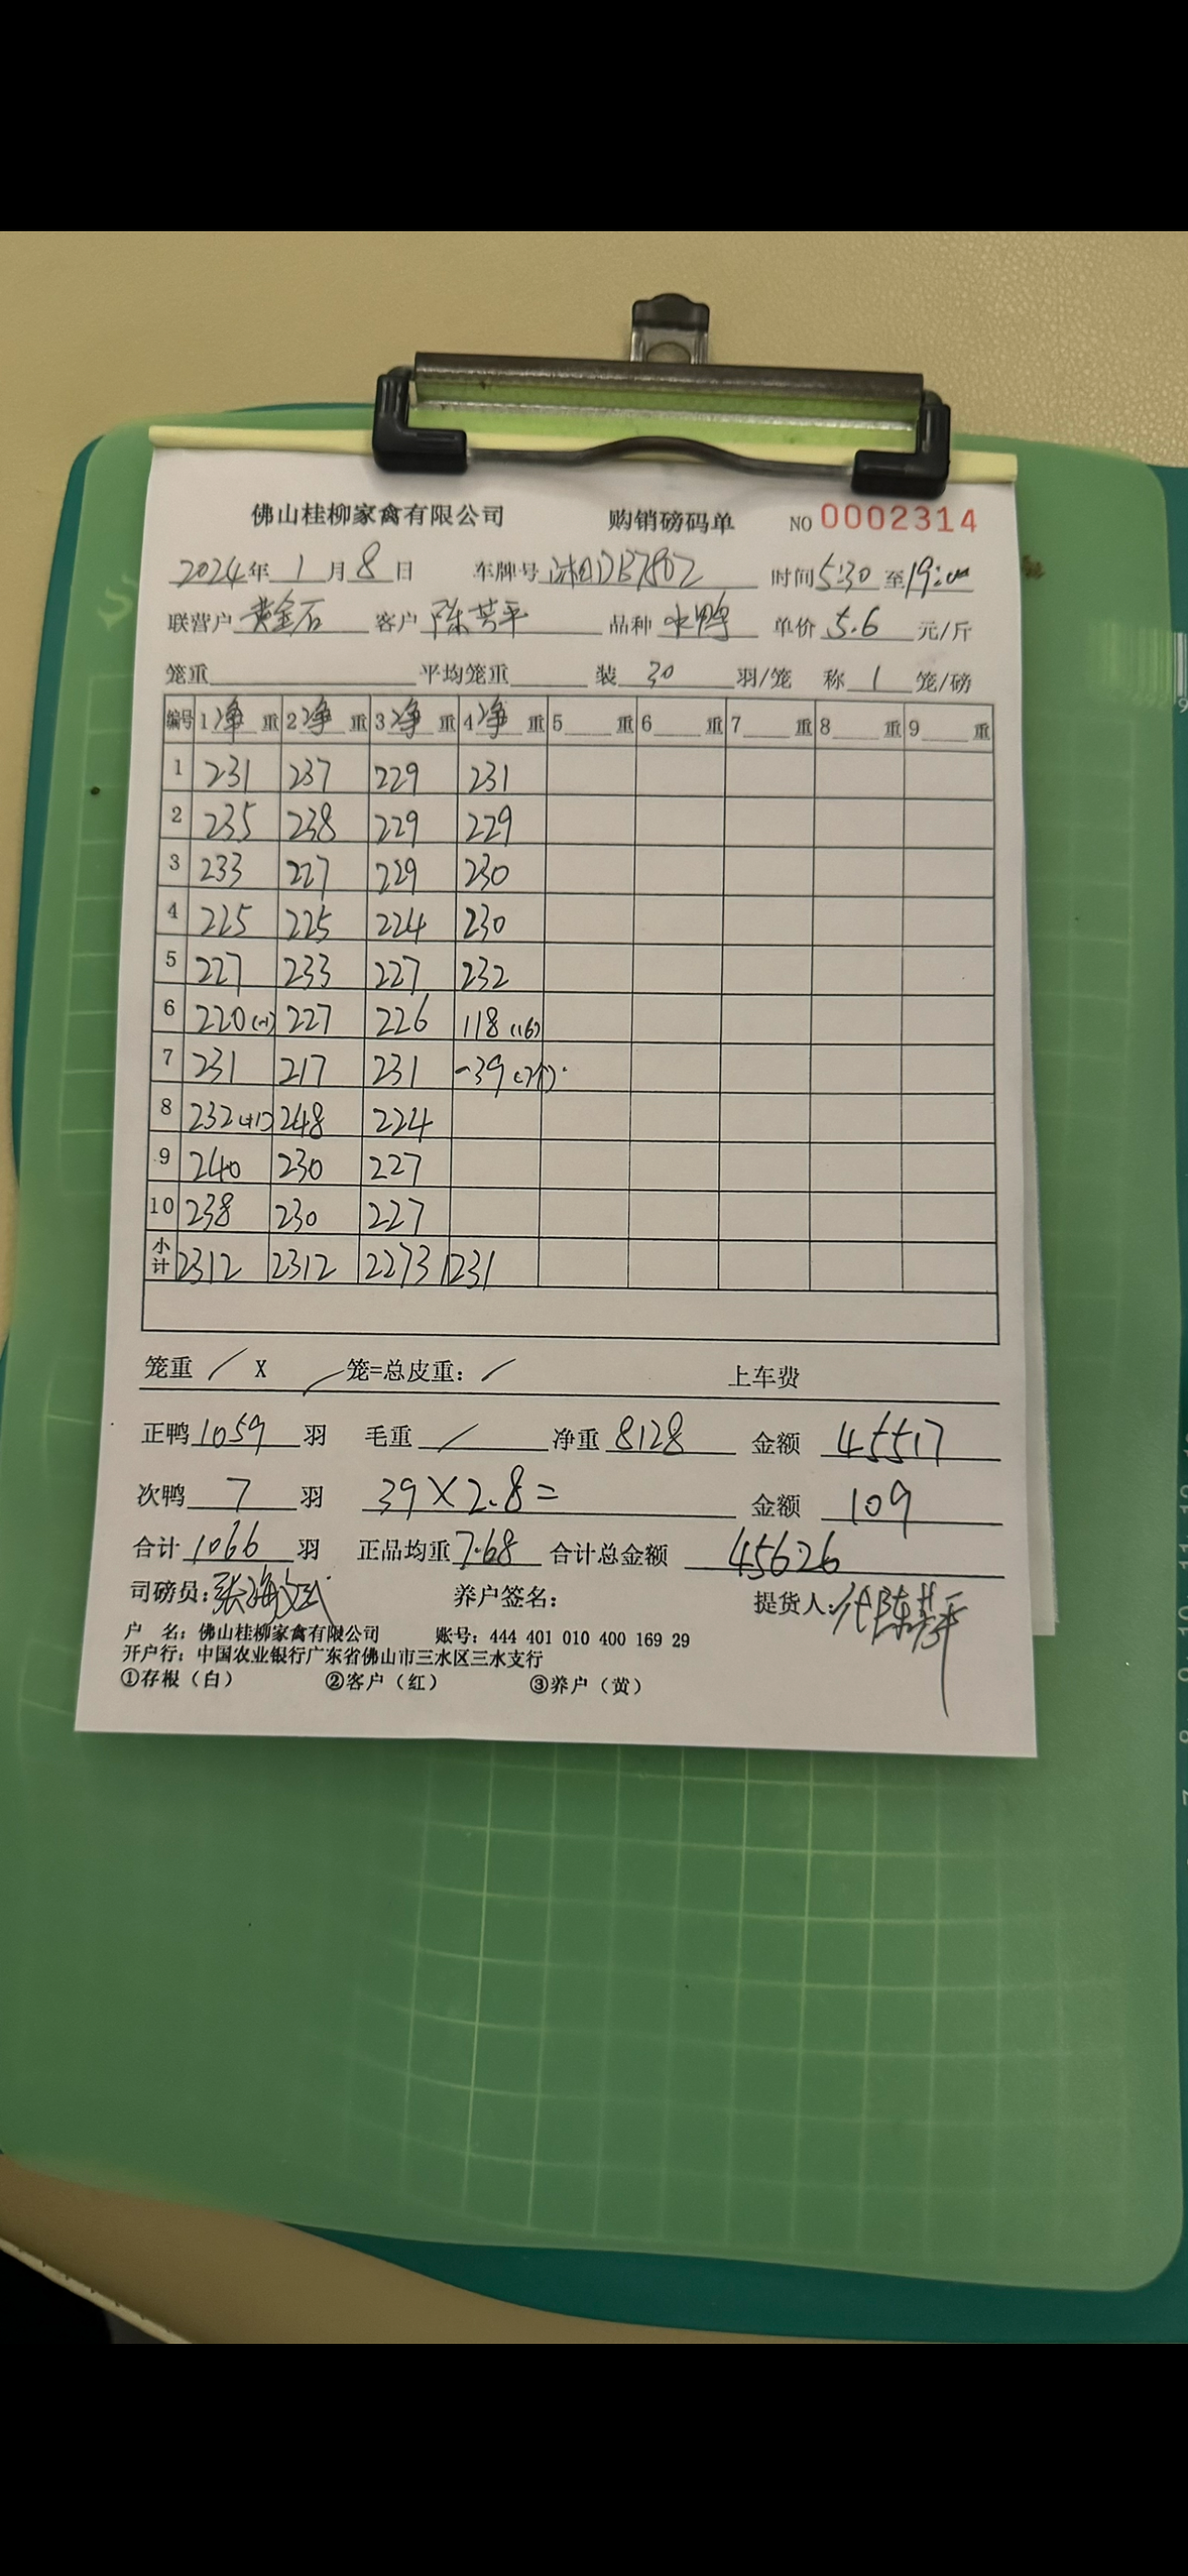 佛山桂柳家禽有限公司 购销磅码单 NO 0002314
2024年 1 月 8 日 车牌号 湘DB7802 时间 5:30 至 19:00
联营户 黄金石 客户 陈芳平 品种 水鸭 单价 5.6 元/斤
笼重 平均笼重 装 30 羽/笼 称 1 笼/磅
编号 1净重 2净重 3净重 4净重 5 重 6 重 7 重 8 重 9 重
1 231 237 229 231
2 235 238 229 229
3 233 227 229 230
4 225 225 224 230
5 227 233 227 232
6 220(-1) 227 226 118 (16)
7 231 217 231 -39(7个)
8 232(+1) 248 224
9 240 230 227
10 238 230 227
小计 2312 2312 2273 1231
笼重 / X / 笼=总皮重: / 上车费
正鸭 1059 羽 毛重 / 净重 8128 金额 45517
次鸭 7 羽 39×2.8= 金额 109
合计 1066 羽 正品均重 7.68 合计总金额 45626
司磅员: 张海 养户签名: 提货人: 代陈芳平
户 名: 佛山桂柳家禽有限公司 账号: 444 401 010 400 169 29
开户行: 中国农业银行广东省佛山市三水区三水支行
①存根（白） ②客户（红） ③养户（黄）